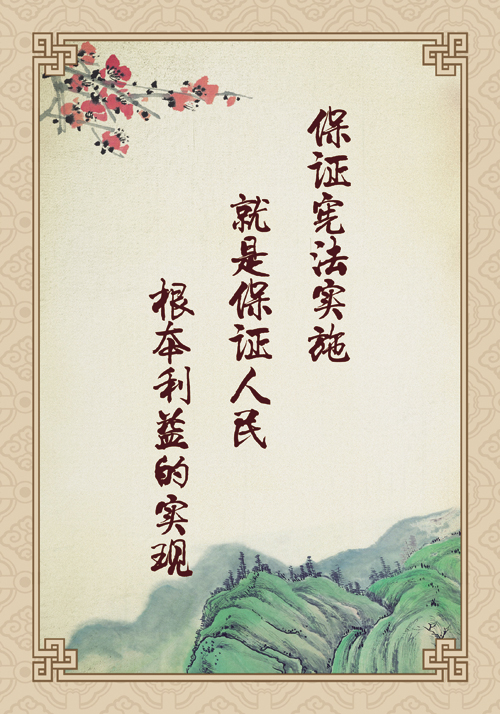 保证宪法实施
就是保证人民
根本利益的实现